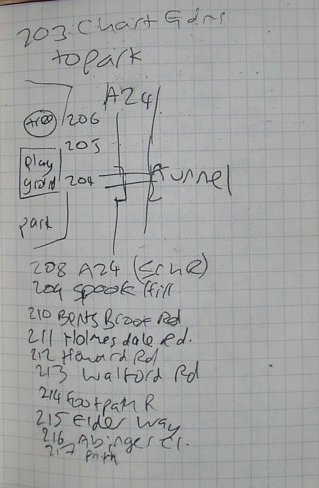 203: Chart Gdns
to park
A24
tree
206
205
play
grnd
204
tunnel
park
208 A24 (
209 Spook Hill
210 Bents Brook Rd
211 Holmesdale Rd.
212 Howard Rd
213 Walford Rd
214 Footpath R
215 Elder Way
216 Abinger Cl.
217 path